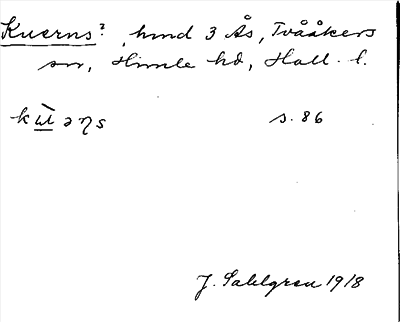 Kuserns?, hmd 3 Ås, Tvååkers
sn, Himle hd, Hall. l.
kɯ̀əɳs s. 86
J. Sahlgren 1918